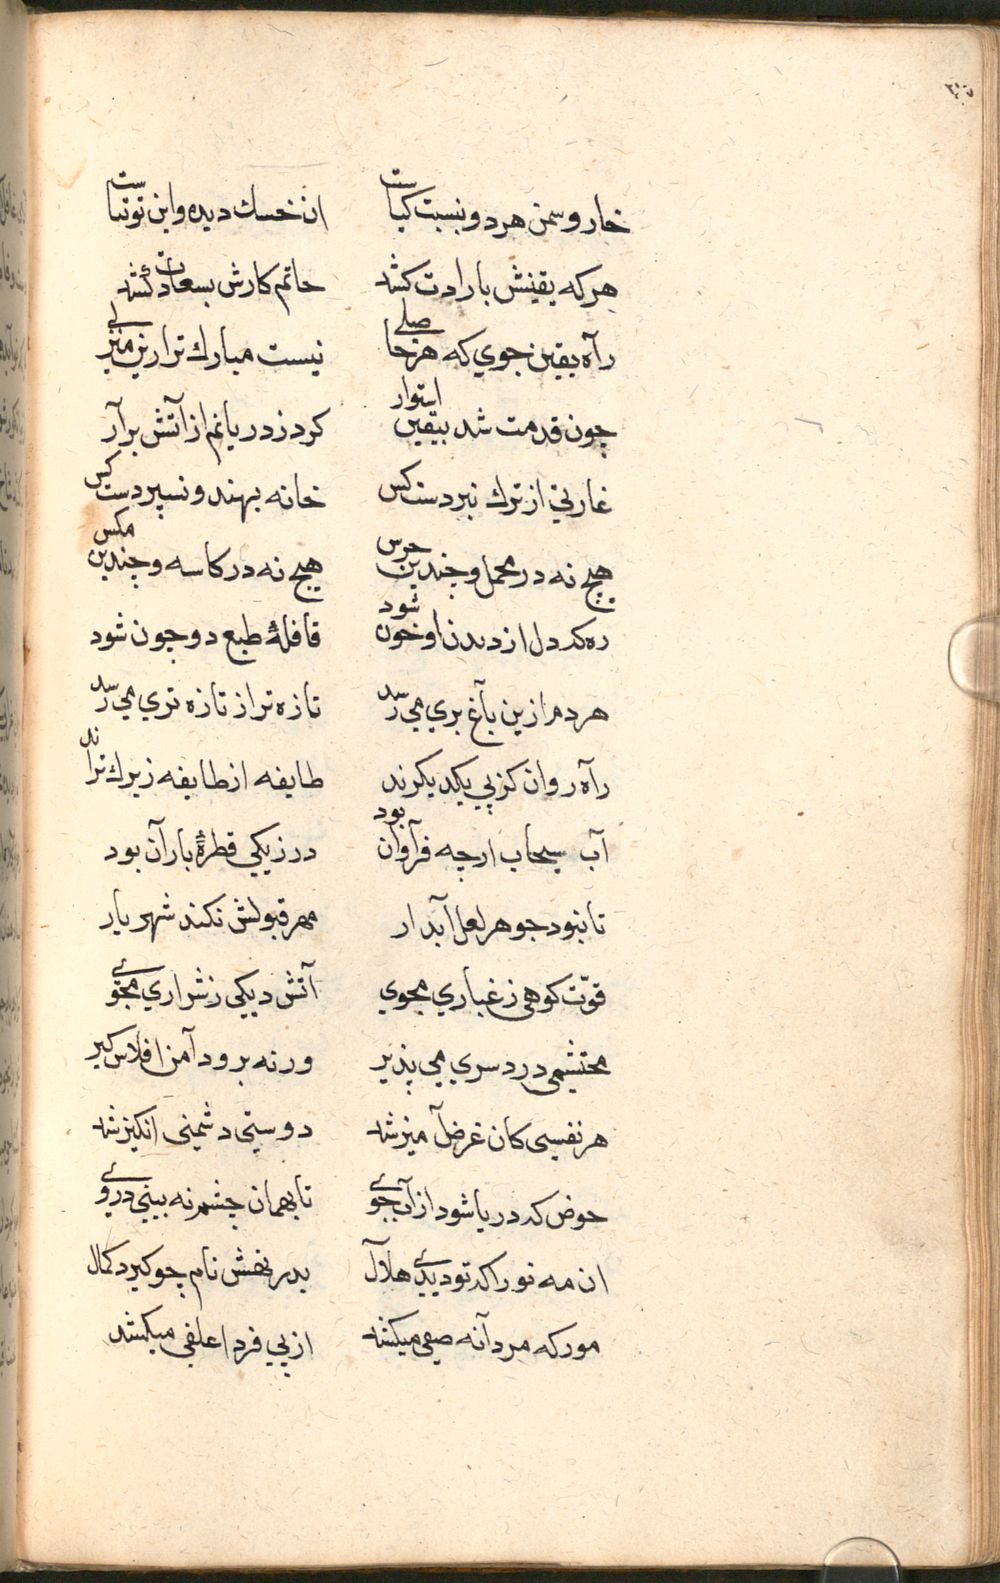 خار و سمن هر دو بنسبت کیاست ان خسك دیده و این توتیاست
هر که یقینش بارادت کشد خاتم کارش بسعادت کشد
راه یقین جوي که هر حاصلي نیست مبارك ترازین منزلي
چون قدمت شد بیقین استوار کرد ز دریا نم از آتش برآر
غارتي از ترك نبردست کس خانه بهندو نسپردست کس
هیچ نه در محمل و چندین جرس هیچ نه در کاسه و چندین مکس
ره که دل از دیدن او خون شود قافلۀ طبع دو جون شود
هر دم ازین باغ بري مي رسد تازه تر از تازه تري مي رسد
راه روان کز پي یکدیکرند طایفه از طایفه زیرك ترند
آب سحاب ارچه فرآوان بود در ز یکي قطرۀ باران بود
تا نبود جوهر لعل آبدار مهر قبولش نکند شهریار
قوّت کوهي ز غباري مجوي آتش دیکي ز شراري مجوي
محتشمي درد سري مي پذیر ورنه برو دامن افلاس کیر
هر نفسي کان غرض آمیز شد دوستي دشمني انکیز شد
حوض که دریا شود از آب جوي تا بهمان چشم نه بیني دروي
ان مه نو را که تو دیدي هلال بدر نهش نام چو کیرد کمال
مور که مردانه صفي میکشد از پي فردا علفي میکشد